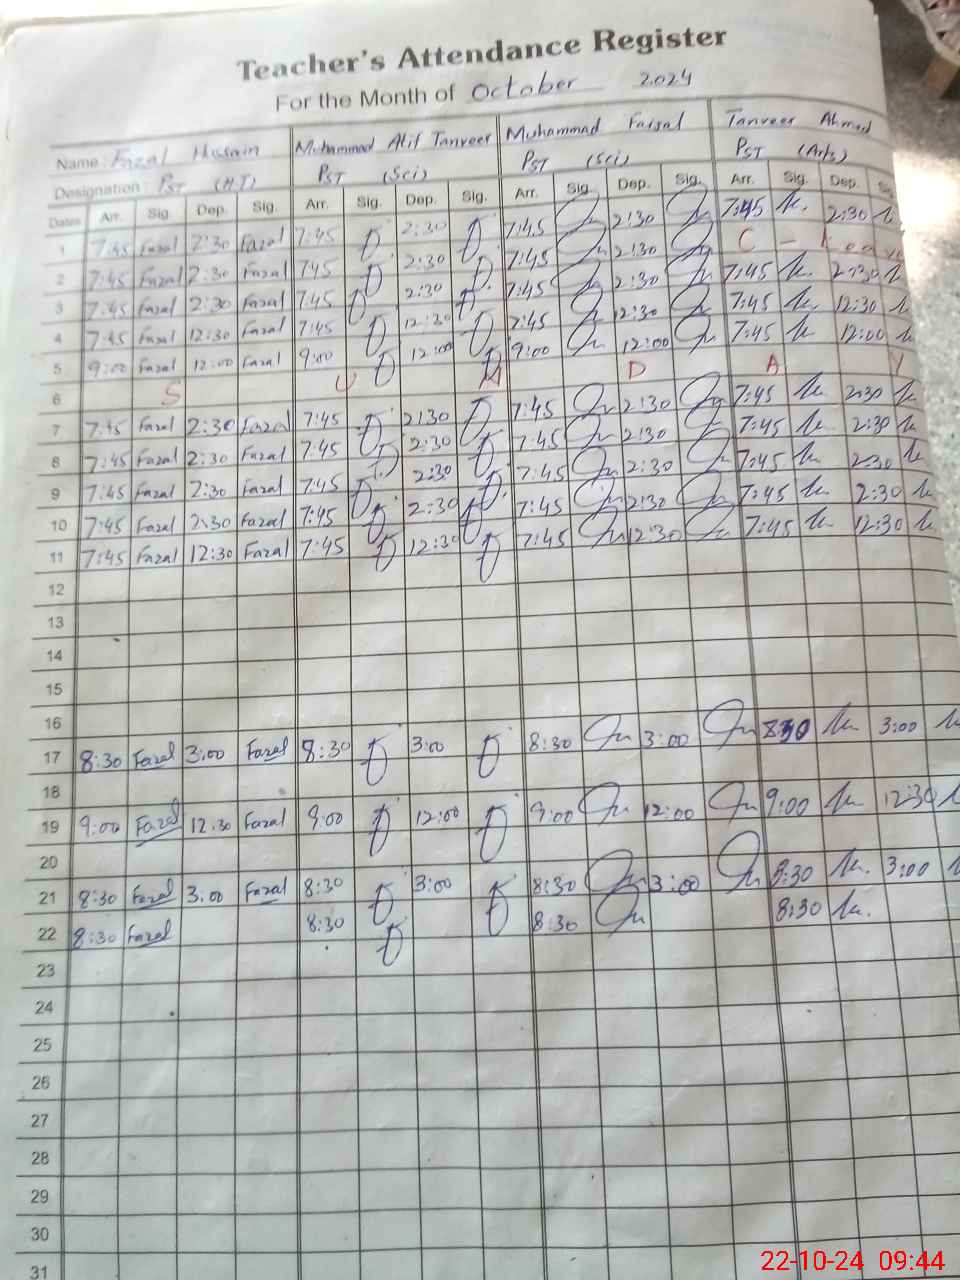 Teacher's Attendance Register
For the Month of October 2024
Name: Fazal Hussain Muhammad Atif Tanveer Muhammad Faisal Tanveer Ahmad
Designation: PST (H.T) PST (Sci) PST (Sci) PST (Arts)
Dates Arr. Sig. Dep. Sig. Arr. Sig. Dep. Sig. Arr. Sig. Dep. Sig. Arr. Sig. Dep.
1 7:45 Fazal 2:30 Fazal 7:45 2:30 7:45 2:30 7:45 2:30
2 7:45 Fazal 2:30 Fazal 7:45 2:30 7:45 2:30 C - Leave
3 7:45 Fazal 2:30 Fazal 7:45 2:30 7:45 2:30 7:45 2:30
4 7:45 Fazal 12:30 Fazal 7:45 12:30 7:45 12:30 7:45 12:30
5 9:00 Fazal 12:00 Fazal 9:00 12:00 9:00 12:00 7:45 12:00
6 S U N D A Y
7 7:45 Fazal 2:30 Fazal 7:45 2:30 7:45 2:30 7:45 2:30
8 7:45 Fazal 2:30 Fazal 7:45 2:30 7:45 2:30 7:45 2:30
9 7:45 Fazal 2:30 Fazal 7:45 2:30 7:45 2:30 7:45 2:30
10 7:45 Fazal 2:30 Fazal 7:45 2:30 7:45 2:30 7:45 2:30
11 7:45 Fazal 12:30 Fazal 7:45 12:30 7:45 12:30 7:45 12:30
12
13
14
15
16
17 8:30 Fazal 3:00 Fazal 8:30 3:00 8:30 3:00 830 3:00
18
19 9:00 Fazal 12:30 Fazal 9:00 12:00 9:00 12:00 9:00 12:30
20
21 8:30 Fazal 3:00 Fazal 8:30 3:00 8:30 3:00 8:30 3:00
22 8:30 Fazal 8:30 8:30 8:30
23
24
25
26
27
28
29
30
31
22-10-24 09:44